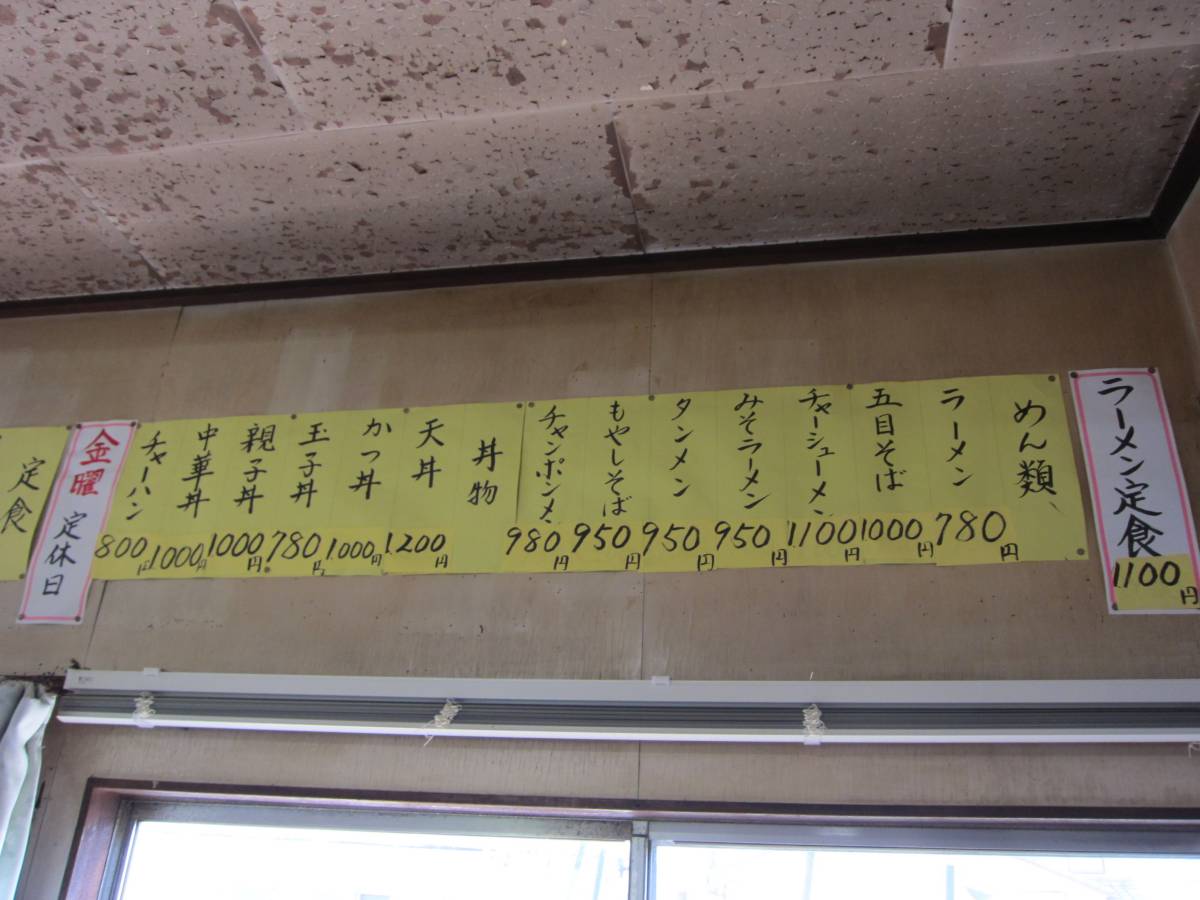 ラーメン定食
1100円
めん類
ラーメン
780円
五目そば
1000円
チャーシューメン
1100円
みそラーメン
950円
タンメン
950円
もやしそば
950円
チャンポンメン
980円
丼物
天丼
1,200円
かつ丼
1,000円
玉子丼
780円
親子丼
1000円
中華丼
1000円
チャーハン
800円
金曜定休日
定食